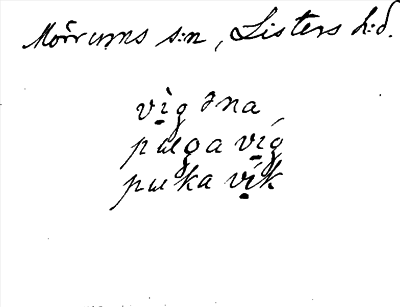 Mörrums s:n, Listers h:d.
vì̤gəna
pæga ví̤g
pæka ví̤k